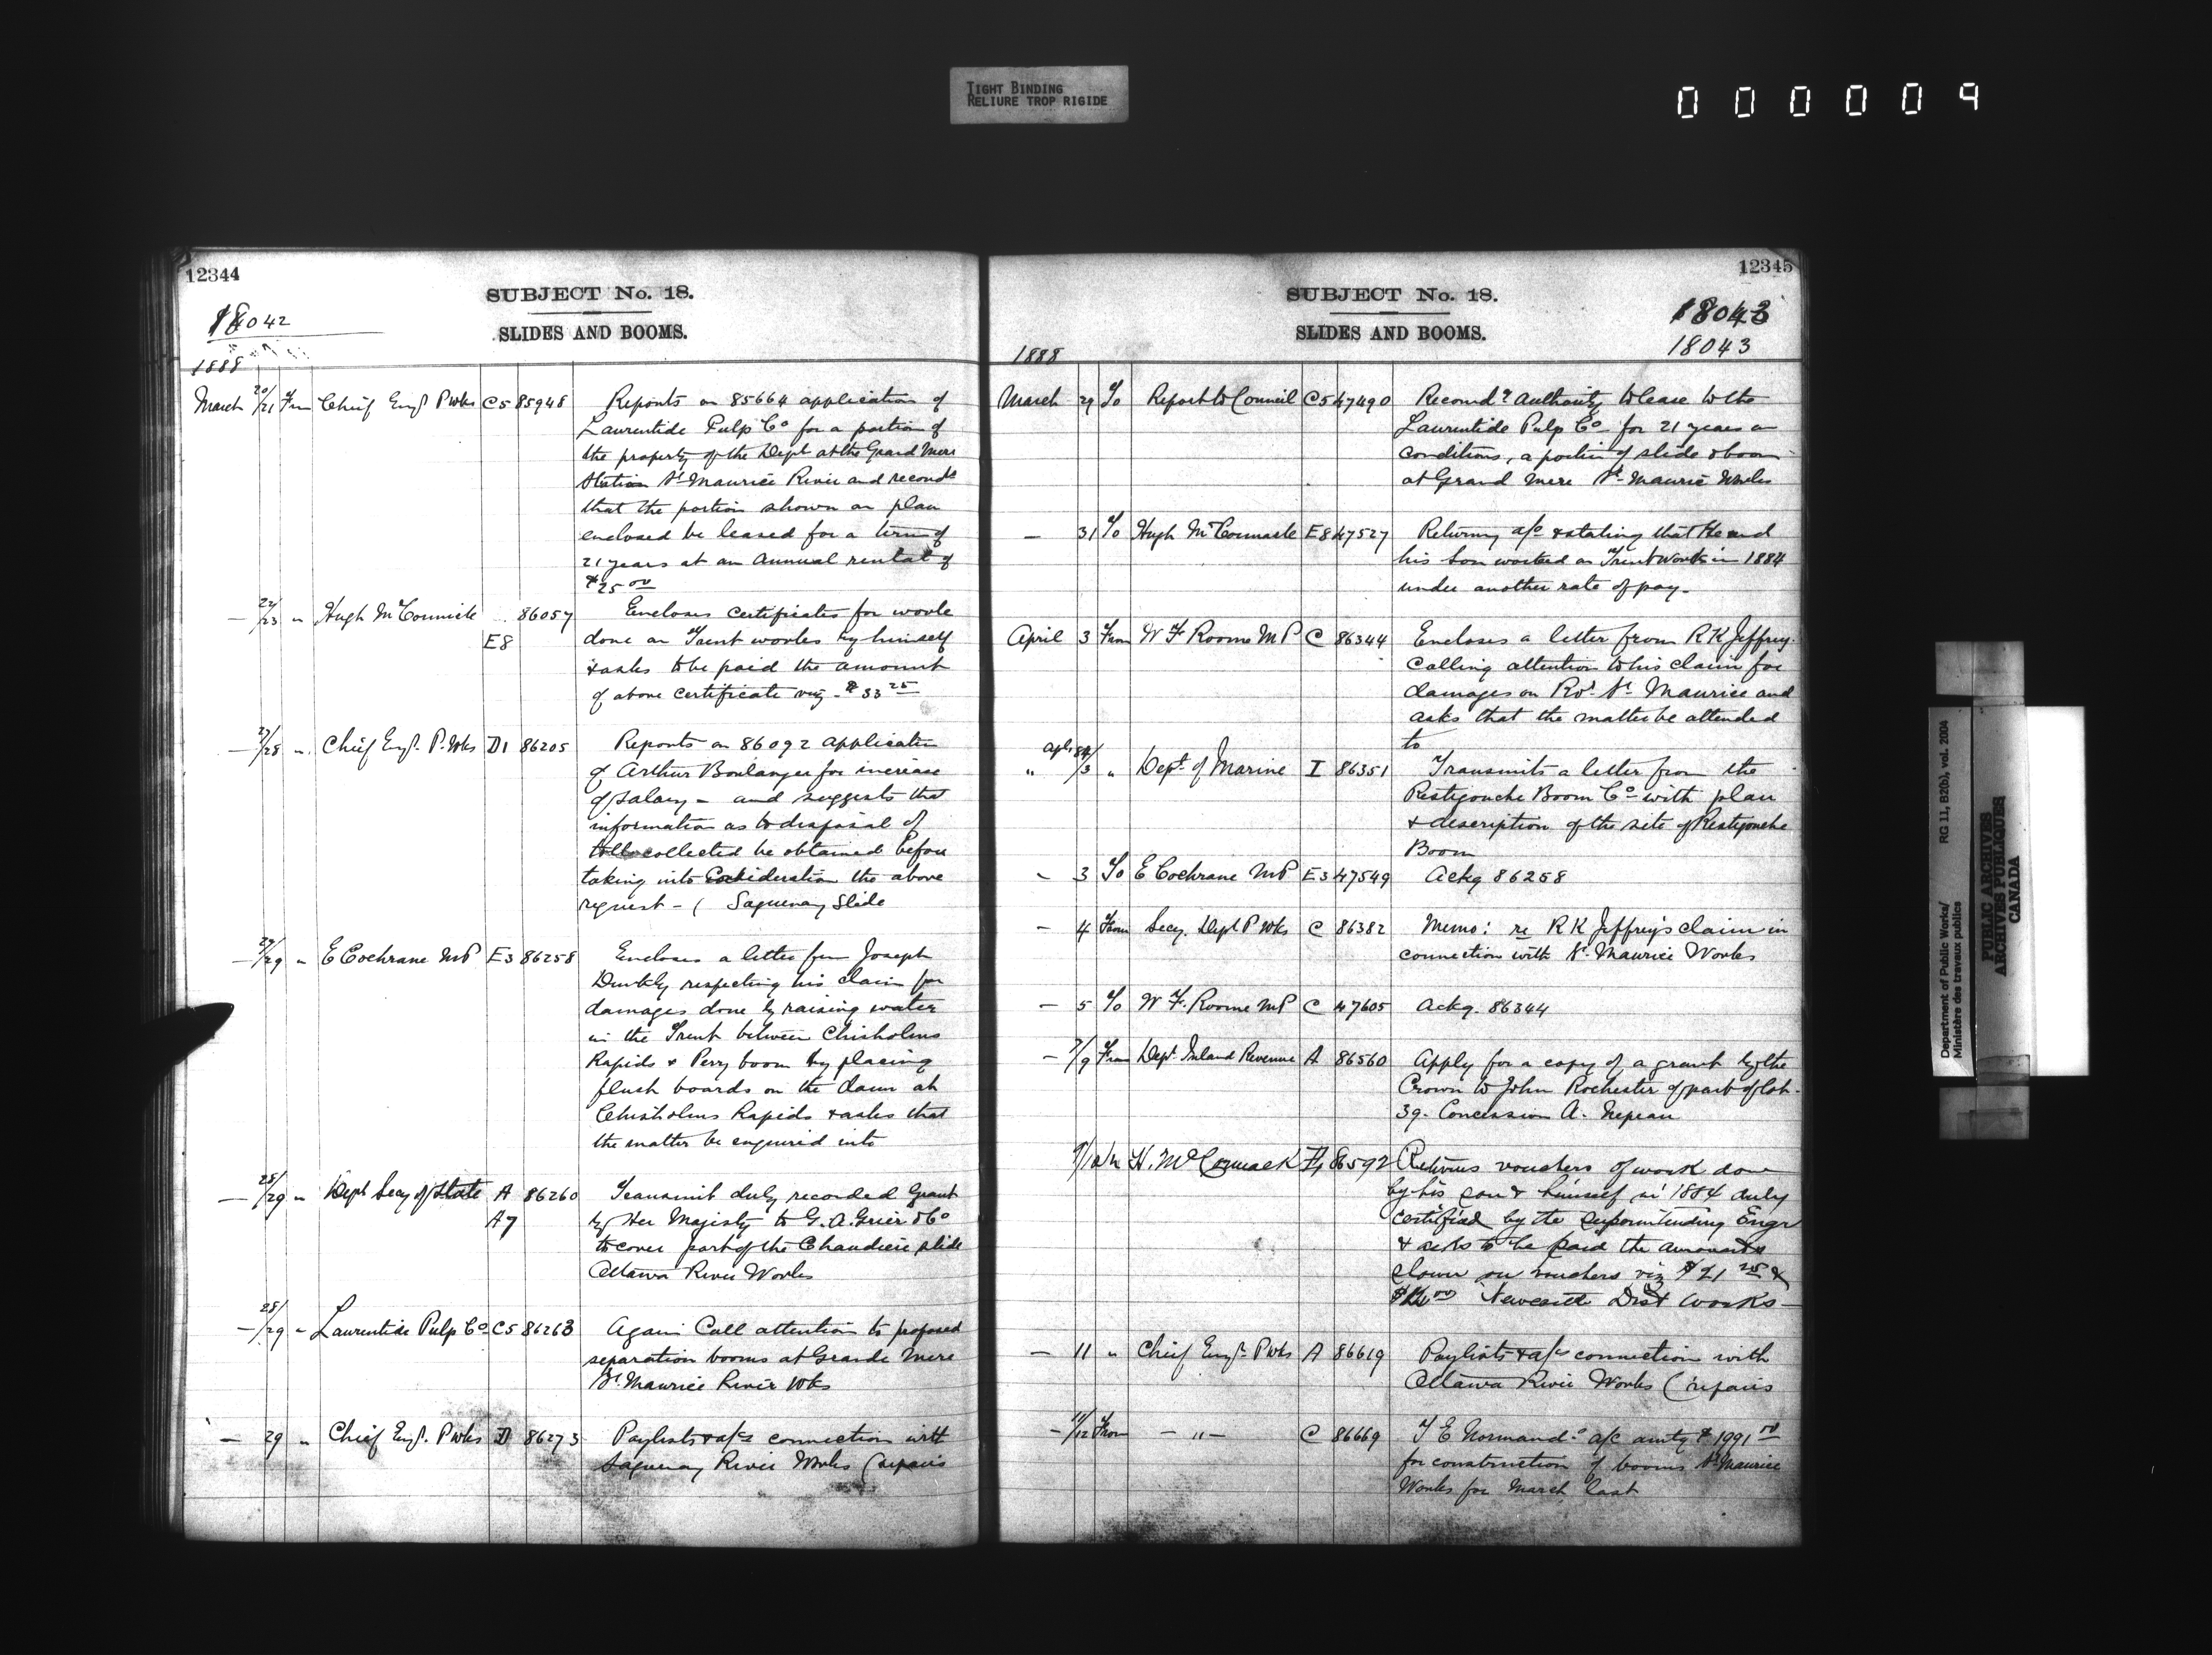 TIGHT BINDING
RELIURE TROP RIGIDE
000009
12344
SUBJECT No. 18.
18042
SLIDES AND BOOMS.
1888
March 20/21 From Chief Engr P Wks C5 85948 Reports on 85664 application of
Laurentide Pulp Co for a portion of
the property of the Dept at the Grand Mere
Station St Maurice River and recomds
that the portion shown on plan
enclosed be leased for a term of
21 years at an annual rental of
$25.00
— 22/23 " Hugh McCormick 86057 Encloses certificates for work
E8 done on Trent works by himself
& asks to be paid the amount
of above certificate viz - $33 25
— 27/28 " Chief Engr. P. Wks D1 86205 Reports on 86092 application
of Arthur Boulanger for increase
of salary - and suggests that
information as to disposal of
tolls collected be obtained before
taking into consideration the above
request - ( Saguenay Slide
— 27/29 " E Cochrane MP E3 86258 Encloses a letter from Joseph
respecting his claim for
damages done by raising water
in the Trent between Chisholms
Rapids & Perry boom by placing
flush boards on the dam at
Chisholms Rapids & asks that
the matter be enquired into
— 28/29 " Dept Secy of State A 86260 Transmit duly recorded Grant
A7 by Her Majesty to G. A. Grier & Co
to cover part of the Chaudiere slide
Ottawa River Works
— 28/29 " Laurentide Pulp Co C5 86263 Again Call attention to proposed
separation booms at Grande Mere
St. Maurice River Wks
— 29 " Chief Engr. P Wks D 86273 Paylists & a/cs connection with
Saguenay River Works (repairs
12345
SUBJECT No. 18.
18043
SLIDES AND BOOMS.
18043
1888
March 29 To Report to Council C5 47490 Recomdg Authority to lease to the
Laurentide Pulp Co for 21 years on
conditions, a portion of slide & boom
at Grand Mere St. Maurice Works
— 31 To Hugh McCormack E8 47527 Returning a/c & stating that he and
his Son worked on Trent Works in 1884
under another rate of pay.
April 3 From W F Roome MP C 86344 Encloses a letter from R K Jeffrey
calling attention to his claim for
damages on Rvr St. Maurice and
asks that the matter be attended
to
" /3 " Dept. of Marine I 86351 Transmits a letter from the
Restigouche Boom Co with plan
& description of the site of Restigouche
Boom
— 3 To E Cochrane MP E3 47549 Ackg 86258
— 4 From Secy. Dept P Wks C 86382 Memo: re R K Jeffrey's claim in
connection with St. Maurice Works
— 5 To W. F. Roome MP C 47605 Ackg. 86344
— 7/9 From Dept. Inland Revenue A 86560 Apply for a copy of a grant by the
Crown to John Rochester of part of lot
39. Concession A. Nepean
9/10 " H. McCormack 86592 Returns vouchers of work done
by his son & himself in 1884 duly
certified by the Superintending Engr
& asks to be paid the amounts
shown on vouchers viz $21 25 &
Newcastle Dist works —
— 11 " Chief Engr. P Wks A 86619 Paylists & a/cs connection with
Ottawa River Works (repairs
— 11/12 From — " — C 86669 T E Normand's a/c amtg $1991 00
for construction of booms St. Maurice
Works for March last
Department of Public Works/
Ministère des travaux publics
RG 11, B2(b), vol. 2004
PUBLIC ARCHIVES
ARCHIVES PUBLIQUES
CANADA